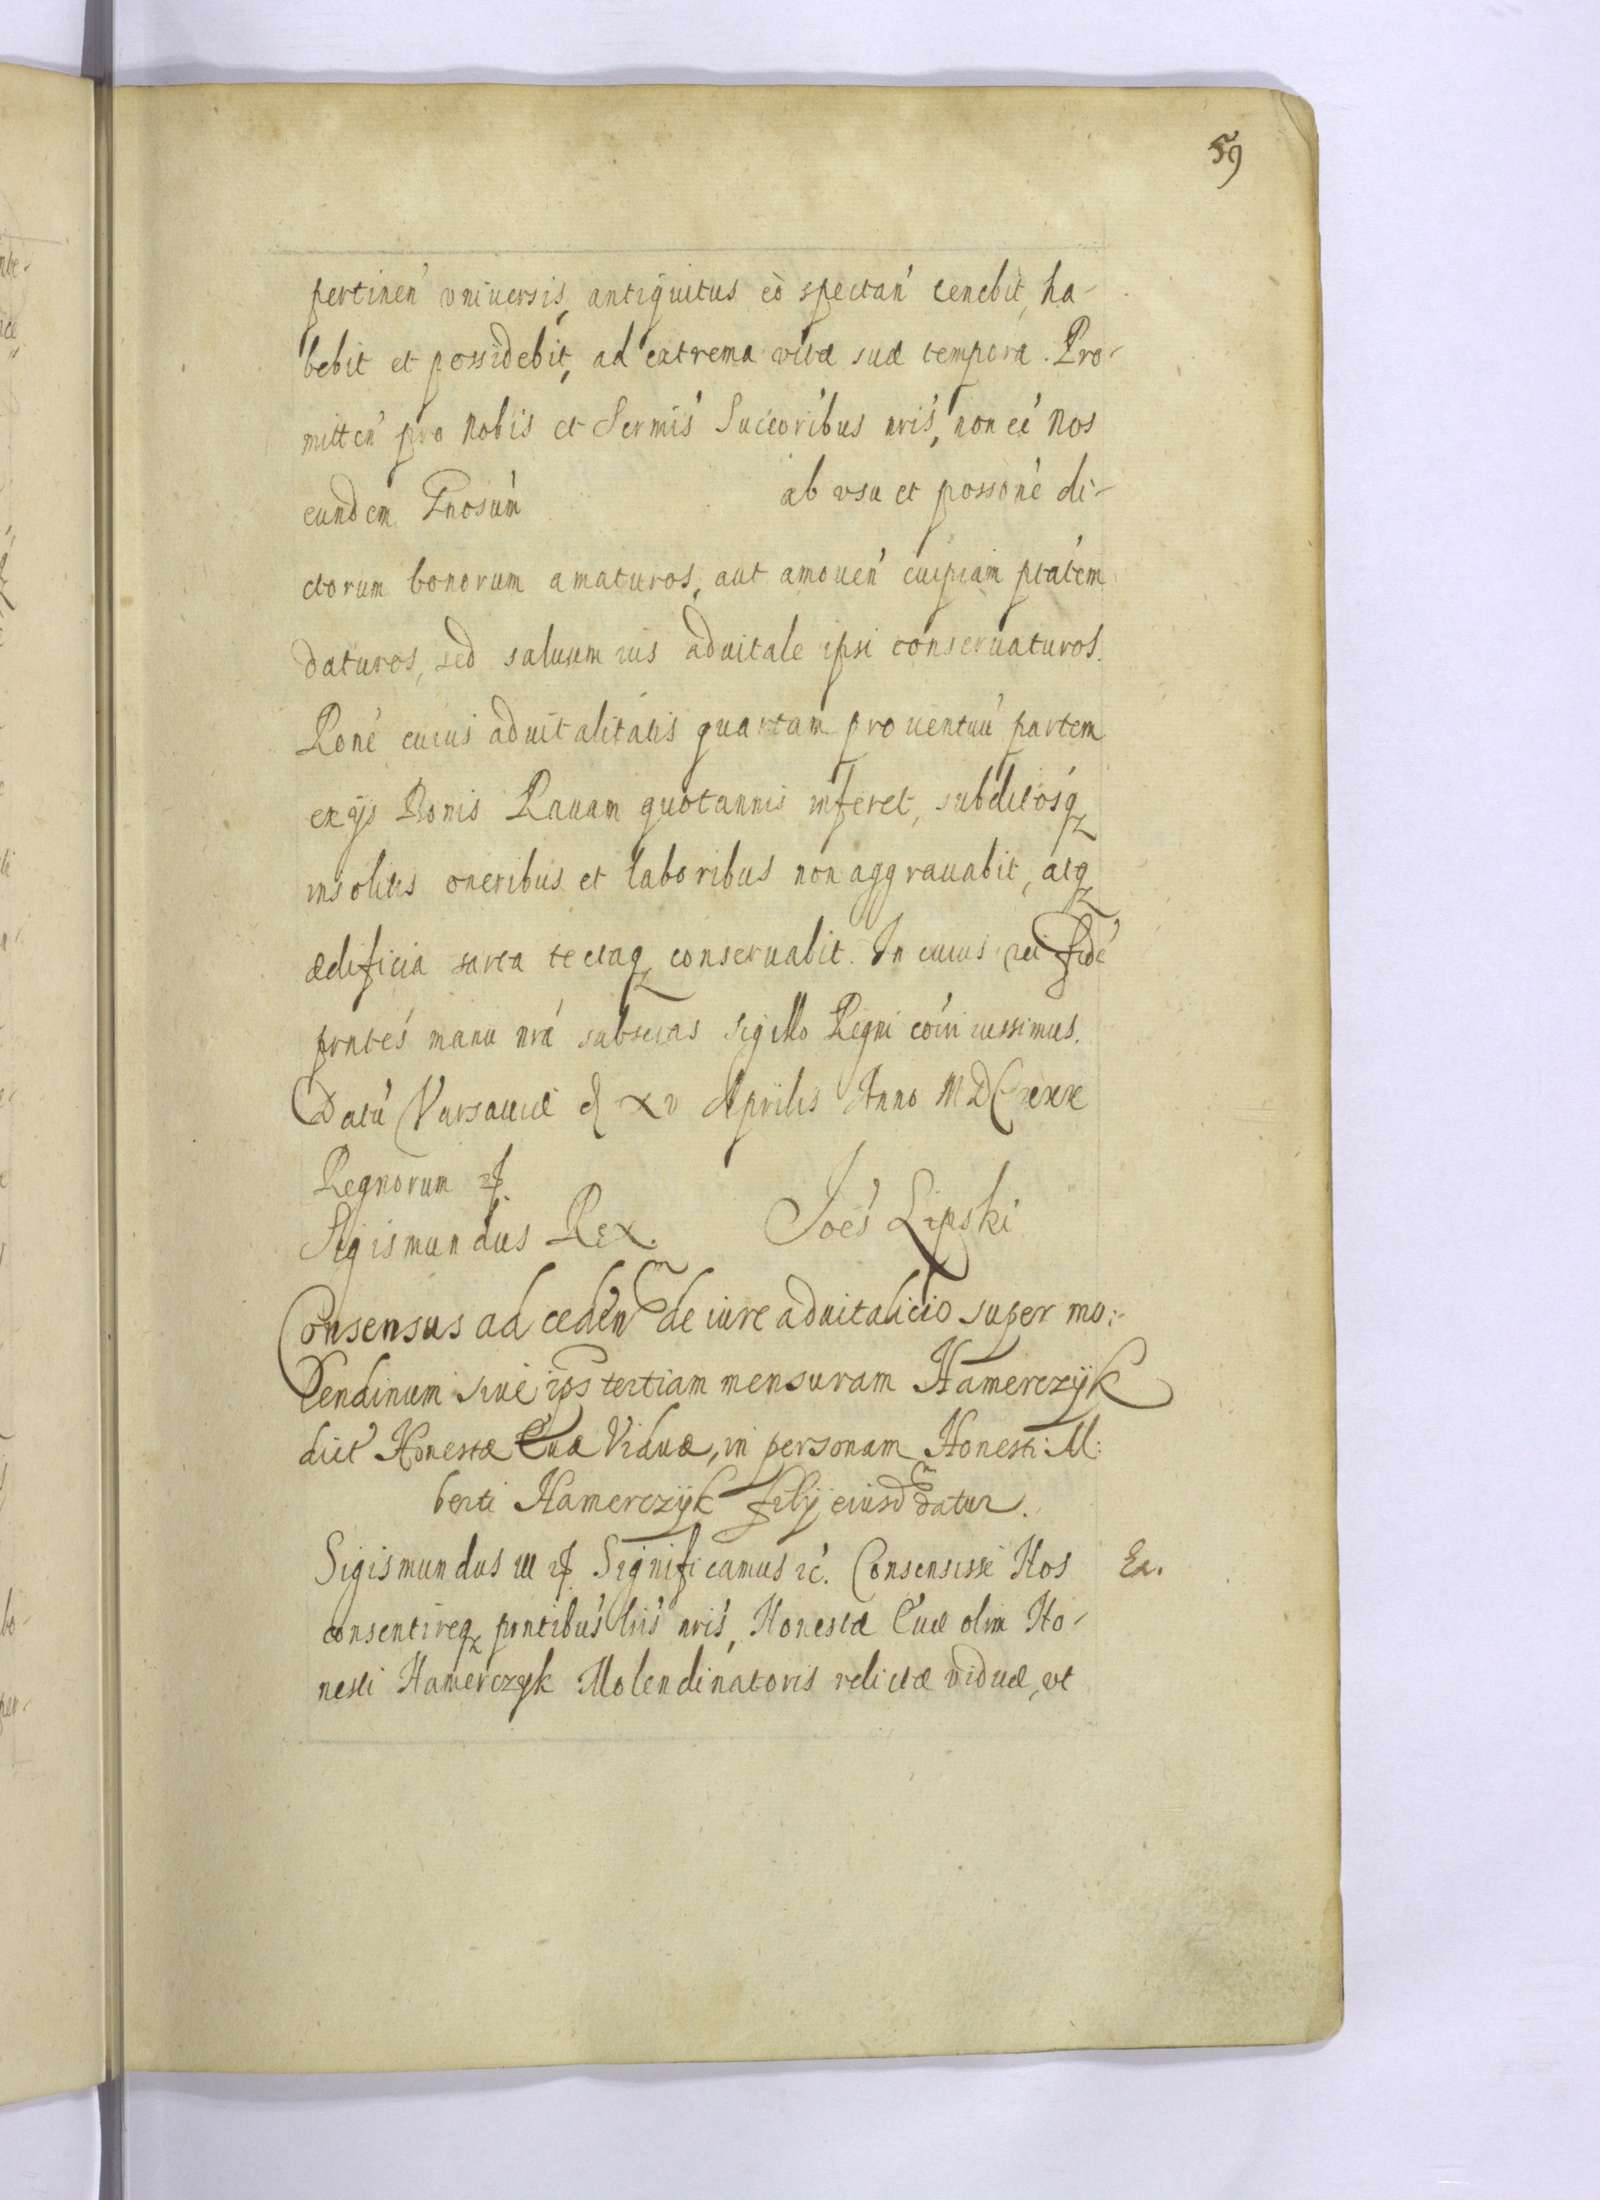 59
pertinen' vniuersis, antiquitus eò spectan' tenebit, ha-
bebit et possidebit, ad extrema vitæ suæ tempora. Pro-
mitten' pro Nobis et Sermis' Succoribus nris', non eé Nos
eundem Gnosum' ab vsu et possone' di-
ctorum bonorum amaturos, aut amouen' cuipiam ptatem
daturos, sed saluum ius aduitale ipsi conseruaturos.
Rone' cuius aduitalitatis quartam prouentuu' partem
ex ijs Bonis Rauam quotannis inferet, subditosq
insolitis oneribus et laboribus non aggrauabit, atq
ædificia sarta tectaq conseruabit. In cuius rei fide'
prntes' manu nra' subscras Sigillo Regni coiri iussimus.
Datu' Varsauiæ d xv Aprilis Anno MDCxxx
Regnorum
Sigismundus Rex. Joes' Lipski
Consensus ad ceden^m de iure aduitalicio super mo:-
lendinum siue ips tertiam mensuram Hamerczÿk
dict' Honestæ Euæ Viduæ, in personam Honesti Al:
berti Hamerczÿk filÿ eiusd^m datur.
Sigismundus III Significamus &c'. Consensisse Nos Ex.
consentireq prntibus' lris' nris', Honestæ Euæ olim Ho-
nesti Hamerczyk Molendinatoris relictæ viduæ, vt